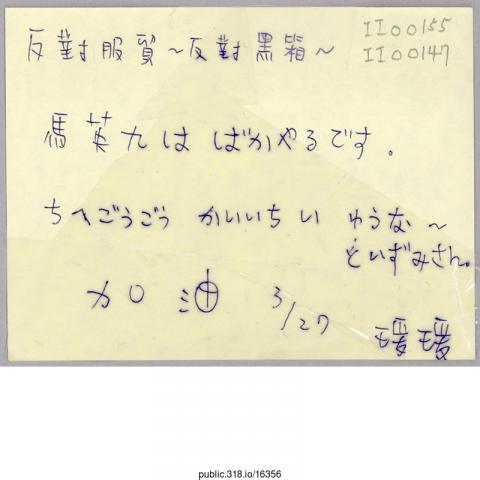 反對服貿~反對黑箱~
II00155
II00147
馬英九は ばかやるです。
ちへごうごう かいいちい ゆうな~
といずみさん。
加油 3/27
瑷瑷
public.318.io/16356